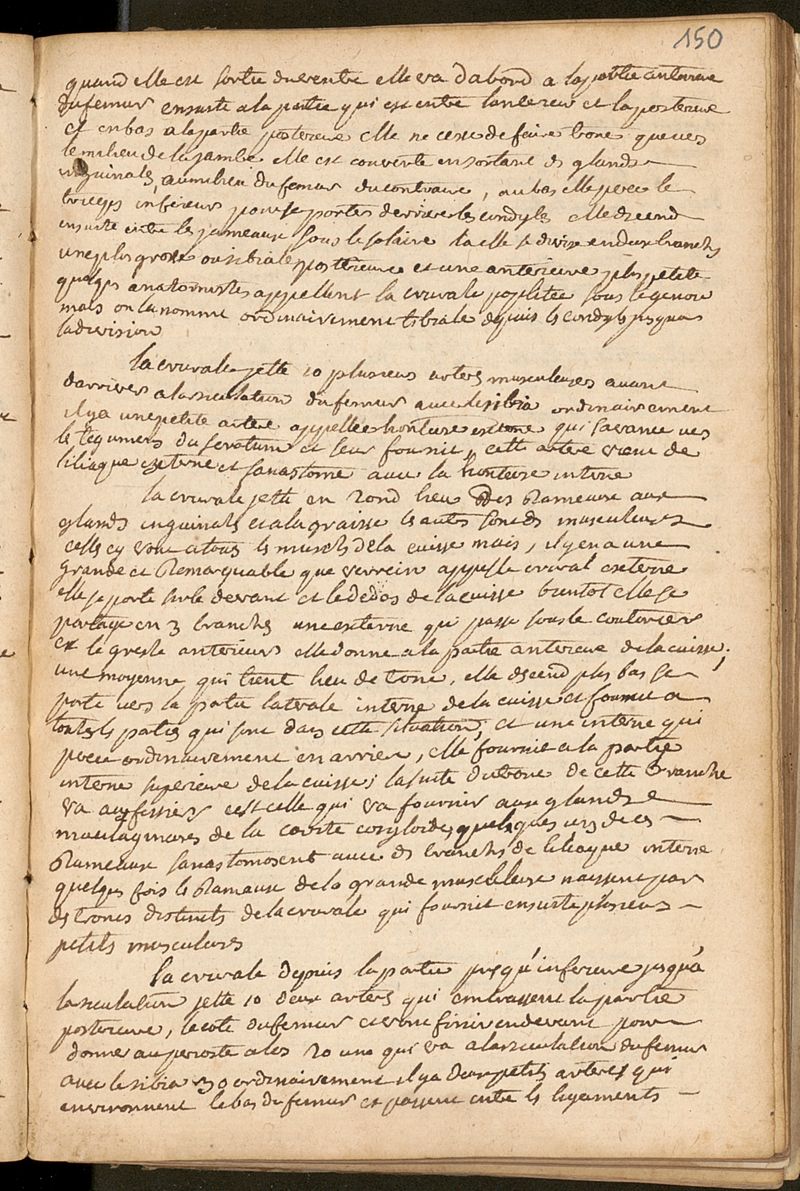 150
quand elle est sortie du ventre elle va d'abord a la partie anterieure
du femur ensuite a la partie qui est entre lanterieur et la posterieure
et en bas a la partie posterieure elle ne cesse de faire tronc que vers
le milieu de la jambe elle est couverte en sortant des glandes
inguinales, au milieu du femur du couturier, au bas elle perce le
triceps inferieur pour se porter derriere les condyles elle descend
ensuite entre les jumeaux sous le solaire la elle se divise en deux branches
une plus grosse ou tibiale posterieure et une anterieure plus petite
quelques anatomistes appellent la crurale poplitée sous le genou
mais on la nomme ordinairement tibiale depuis les condyles jusqua
la division
la crurale jette 1o plusieurs arteres musculeuses avant
darriver a larticulation du femur avec le tibia ordinairement
il y a une petite artere appellée honteuse externe qui savance vers
le tegumens du scrotum et leur fournit, cette artere vient de
liliaque externe et sanastomose avec la honteuse interne
la crurale jette en 2ond lieu des rameaux aux
glandes inguinales et a la graisse les autres sont des musculeuses
celles cy vont a tous les muscles de la cuisse mais, il y en a une
grande et remarquable que verrein appelle crural externe
elle se porte sur le devant et le dedos de la cuisse bientot elle se
partage en 3 branches une externe qui passe sous le couturier
et le gresle anterieur elle donne a la partie anterieure de la cuisse;
une moyenne qui tient lieu de tronc, elle descend plus bas se
porte vers la partie laterale interne de la cuisse et fournit a
toutes les parties qui sont dans cette situation; et une interne qui
perce ordinairement en arriere, elle fournit a la partie
interne superieure de la cuisse; la suite du tronc de cette branche
va aux fessiers cest celle qui va fournir aux glandes
mucilagineuses de la cavité cotyloide, quelques uns de ces
rameaux sanastomosent avec des branches de liliaque interne
quelques fois les rameaux de la grande musculeuse naissent par
des troncs distincts de la crurale qui fournit ensuite plusieurs
petits musculeuses
la crurale depuis la partie presqu'inferieure jusqua
larticulation jette 1o deux arteres qui embrassent la partie
posterieure, le coté du femur et vont finir en devant pour
donner au perioste a los 2o une qui va a larticulation du femur
avec le tibia 3o ordinairement il y a deux petits arteres qui
environnent le bas du femur et passent entre les ligaments